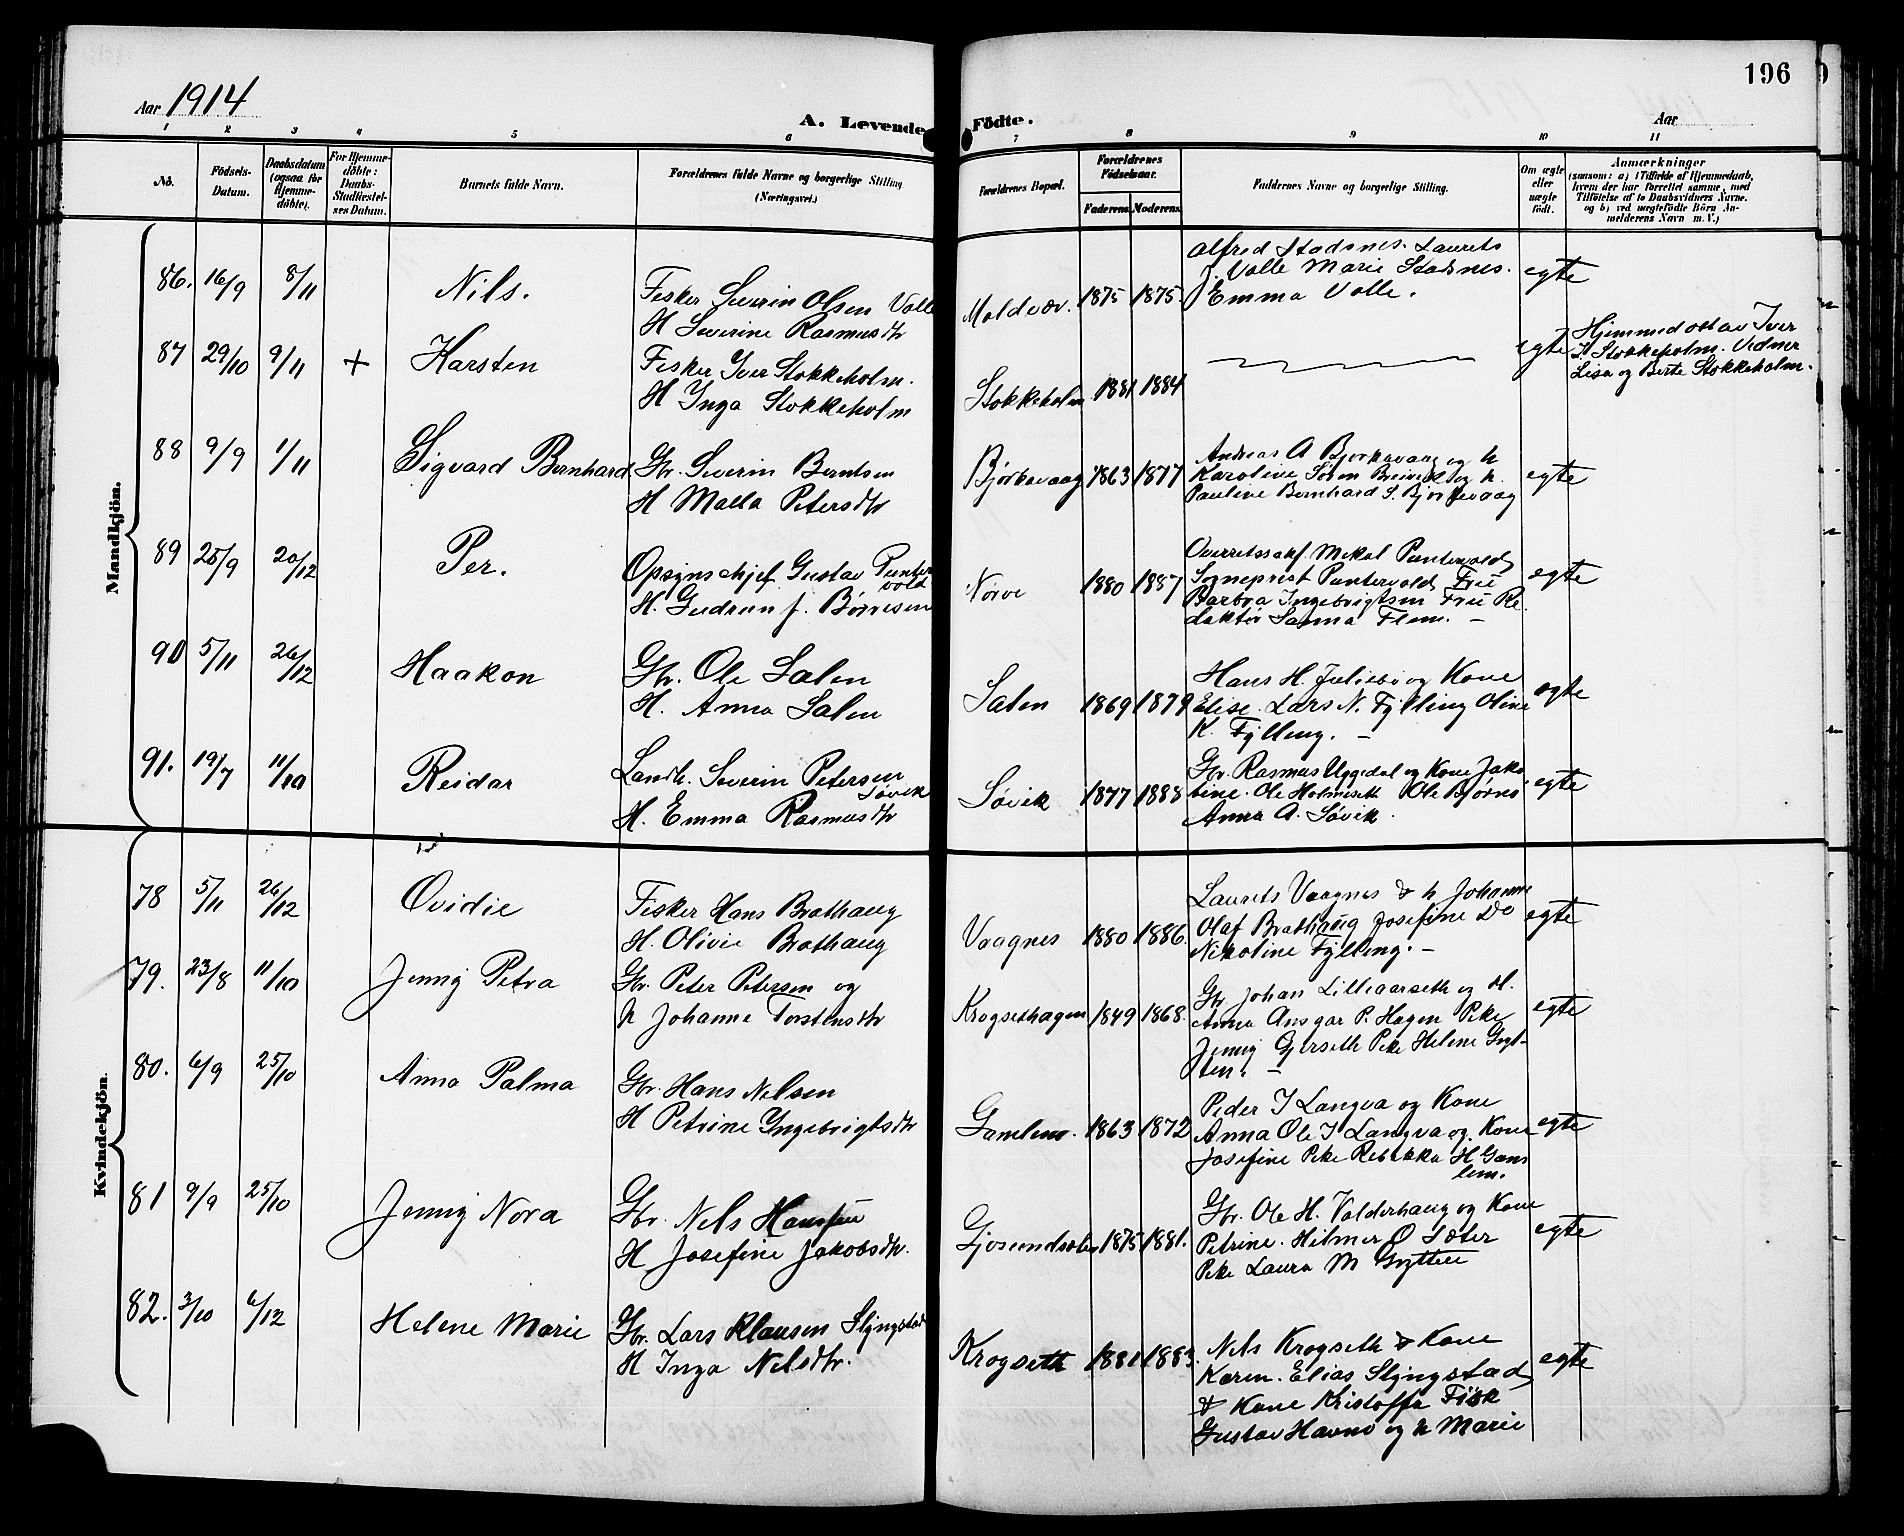 196
Aar 1914
A. Levende Födte.
Aar
1 2 3 4 5 6 7 8 9 10 11
No.
Födsels-
Datum.
Daabsdatum
(ogsaa for
Hjemme-
döbte).
For Hjemme-
döbte:
Daabs-
Stadfæstel-
ses Datum.
Barnets fulde Navn.
Forældrenes fulde Navne og borgerlige Stilling
(Næringsvei.)
Forældrenes Bopæl.
Forældrenes
Födselsaar.
Faderens. Moderens.
Faddernes Navne og borgerlige Stilling.
Om ægte
eller
uægte
födt.
Anmærkninger
(saasom: a) i Tilfælde af Hjemmedaab,
hvem der har forrettet samme, med
Tilföielse af to Daabsvidners Navne.
og b) ved uægtefödte Börn An-
melderens Navn m. V.)
Mandkjön.
86. 16/9 8/11 Nils.
Fisker Severin Olsen Valle
H Severine Rasmusdtr
Moldvær. 1875 1875.
Alfred Stadsnes. Laurits
J. Valle Marie Stadsnes.
Emma Valle.
egte
87 29/10 9/11 + Karsten
Fisker Iver Stokkeholm.
H Inga Stokkeholm
Stokkeholm 1881 1884
egte
Hjemmedöbt av Iver
I. Stokkeholm. Vidner
Lisa og Berte Stokkeholm.
88 9/9 1/11 Sigvard Bernhard
Gbr. Severin Berntsen
H Malla Petersdtr
Bjørkavaag 1863 1877
Andreas A Bjørkavaag og h
Karoline Søren Breivik og h.
Pauline Bernhard S. Bjørkevaag
egte
89 25/9 20/12 Per.
Opsynschjef Gustav Punter
vold
H. Gudrun f. Børresen
Nørve 1880 1887
Overretssakf. Mikal Puntervold
Sogneprest Puntervold, Fru
Barbra Ingebrigtsen Fru Re
daktör Sanna Flem. -
egte
90 5/11 26/12 Haakon
Gbr. Ole Salen
H. Anna Salen
Salen 1869 1879
Hans H. Juliebø og Kone
Elise. Lars N. Fylling Oline
K. Fylling. -
egte
91. 19/7 11/10 Reidar
Landh. Severin Petersen
Søvik
H. Emma Rasmusdtr
Søvik 1877 1888
Gbr. Rasmus Uggedal og Kone Jako
bine. Ole Holmeseth Ole Bjørnø
Anna A. Søvik.
egte
Kvindekjön.
78 5/11 26/12 Ovidie
Fisker Hans Brathaug
H. Olivie Brathaug
Vaagnes 1880 1886.
Laurits Vaagnes & h Johanne
Olaf Brathaug Josefine Do
Nikoline Fylling. -
egte
79. 23/8 11/10 Jenny Petra
Gbr. Peter Petersen og
h Johanne Torstensdtr
Krogsethagen 1849 1868.
Gbr Johan Lilleaarseth og H.
Anna Ansgar P. Hagen Pike
Jenny Gjerseth Pike Helene Gryt-
ten. -
egte
80. 6/9 25/10 Anna Palma
Gbr. Hans Nilsen
H Petrine Yngebrigtsdtr
Gamlem. 1863 1872
Peder I Langva og Kone
Anna Ole I Langva og Kone
Josefine Pike Rebekka H Gam
lem.
egte
81 9/9 25/10 Jenny Nora
Gbr. Nils Hanssen
H Josefine Jakobsdtr.
1875 1881.
Gbr. Ole H. Valderhaug og Kone
Petrine. Hilmer O Sæter
Pike Laura M Grytten
egte
82. 3/10 6/12 Helene Marie
Gbr. Lars Klausen Slyngstad
H Inga Nilsdtr.
Krogseth 1881 1883.
Nils Krogseth & Kone
Karen. Elias Slyngstad
& Kone Kristoffa Fisk
Gustav Havnø og h Marie
egte